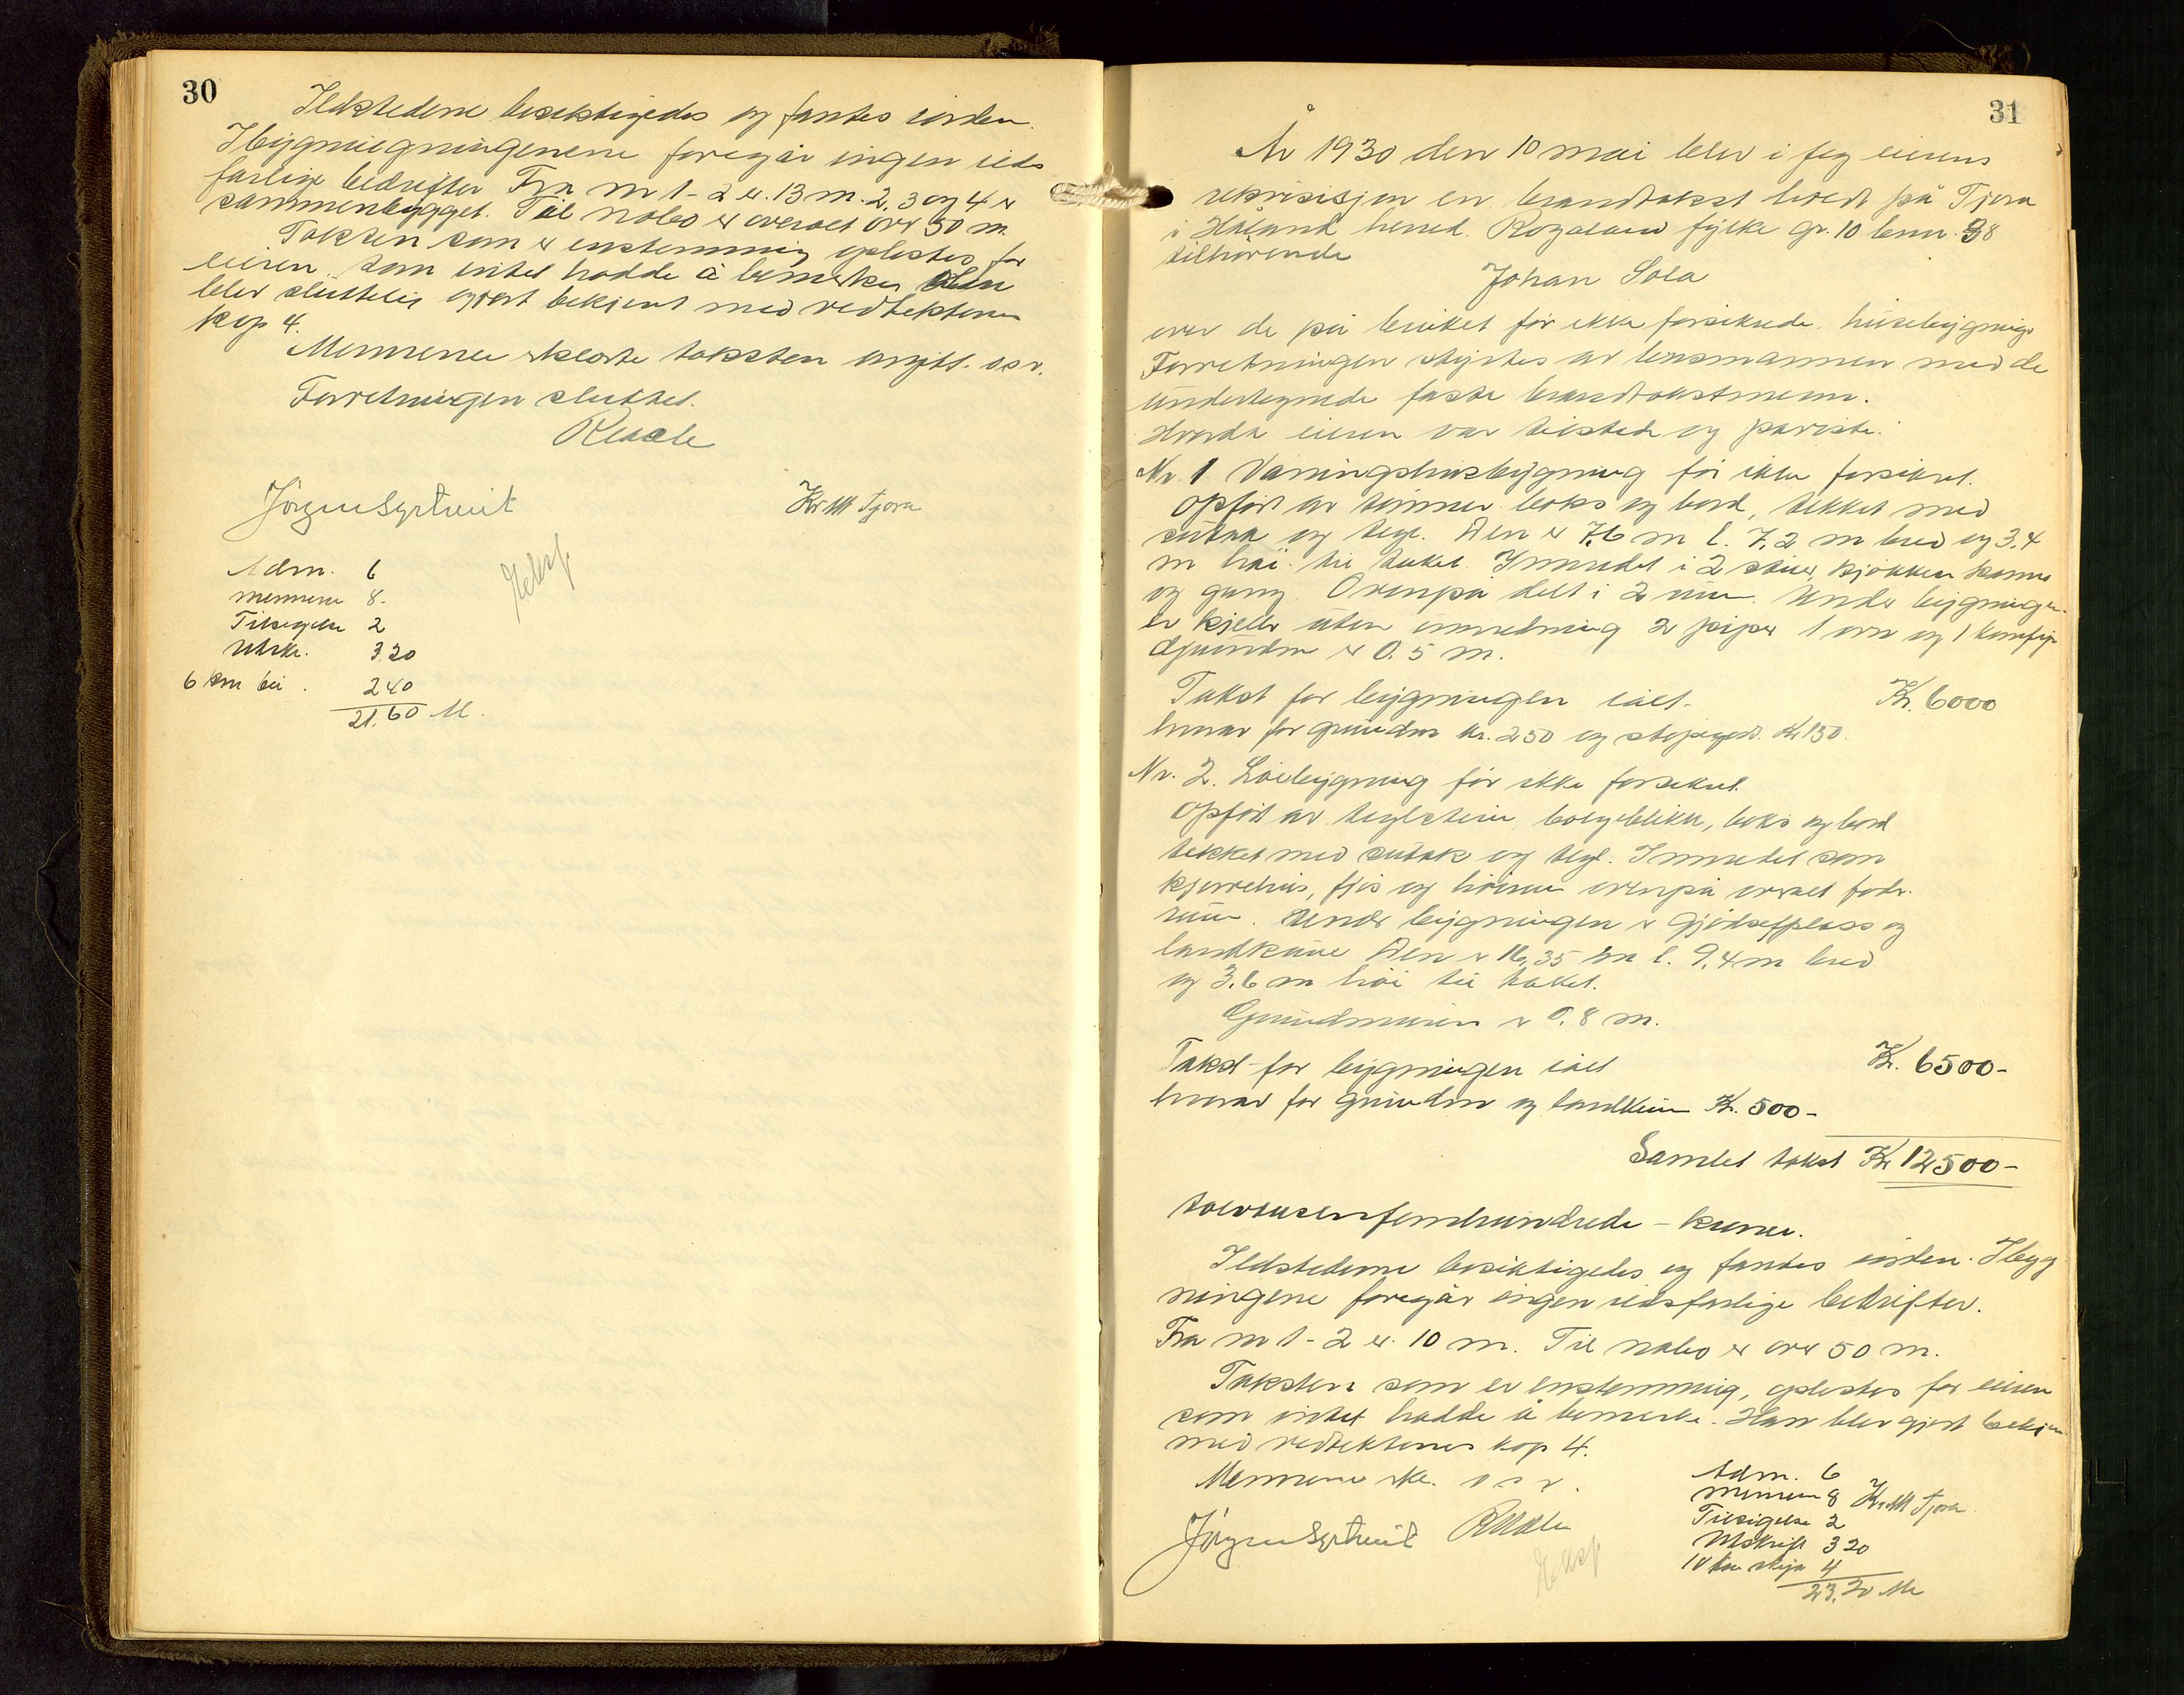 30
Ildstedene besiktigedes og fantes iorden.
I bygningningenene foregår ingen ilds
farlige bedrifter Fra nr 1 - 2 er. 13 m. 2, 3 og 4 er
sammenbygget. Til nabo er overalt over 50 m.
Taksten som er enstemmig oplestes for
eieren. som intet hadde å bemerke. Han
blev sluttelig gjort bekjent med vedtektenes
kap 4.
Mennene erklærte taksten avgitt. o.s.v.
Forretningen sluttet.
Jörgen Syrtveit
Kr M Tjora
Eksp.
Adm. 6
mennene 8.
Tilsigelse 2
Utskr. 3,20
6 km bil. 240
21.60 M.
31
År 1930 den 10 mai blev i fög eierens
rekvisisjon en brandtakst holdt på Tjora
i Håland herred. Rogaland fylke gr. 10 bnr. 38
tilhörende
Johan Sola
over de på bruket för ikke forsikrede husebygninger
Forretningen styrtes av lensmannen med de
undertegnede faste brandtakstmenn.
Hvorda eieren var tilstede og påviste.
Nr. 1 Våningshusbygning för ikke forsikret.
Opfört av tömmer boks og bord, tekket med
sutak og tegl. Den er 7,6 m l. 7,2 m bred og 3,4
m höi til taket. Innredet i 2 stuer, kjökken kammer
og gang. Ovenpå delt i 2 rum. Under bygningen
er kjeller uten innredning 2 piper 1 ovn og 1 komfyr
Grundm er 0.5 m.
Takst for bygningen ialt. Kr. 6000
hvorav for grundm kr. 250 og skorpiper Kr 150.
Nr. 2. Löebygning för ikke forsikret.
Opfört av teglstein, bolgeblikk, boks og bord
tekket med sutak og tegl. Innredet som
kjerrehus, fjös og löerum ovenpå overalt foder
rum. Under bygningen er gjödselplass og
landkum Den er 16,35 m l. 9,4 m bred
og 3.6 m höi til taket.
Grundmuren er 0.8 m.
Takst for bygningen ialt Kr. 6500-
hvorav for grundm og landkum Kr. 500-
Samlet takst Kr 12500-
tolvtusenfemhundrede - kroner.
Ildstedene besiktigedes og fantes iorden. I byg
ningene foregår ingen ildsfarlige bedrifter.
Fra nr 1 - 2 er. 10 m. Til nabo er over 50 m.
Taksten som er enstemmig, oplestes for eieren
som intet hadde å bemerke. Han blev gjort bekjen
med vedtektenes kap 4.
Mennene erkl. o s v.
Jörgen Syrtveit
Kr M Tjora
Eksp.
Adm. 6
mennene 8
Tilsigelse 2
Utskrift 3 20
10 km skyss 4
23.20 M